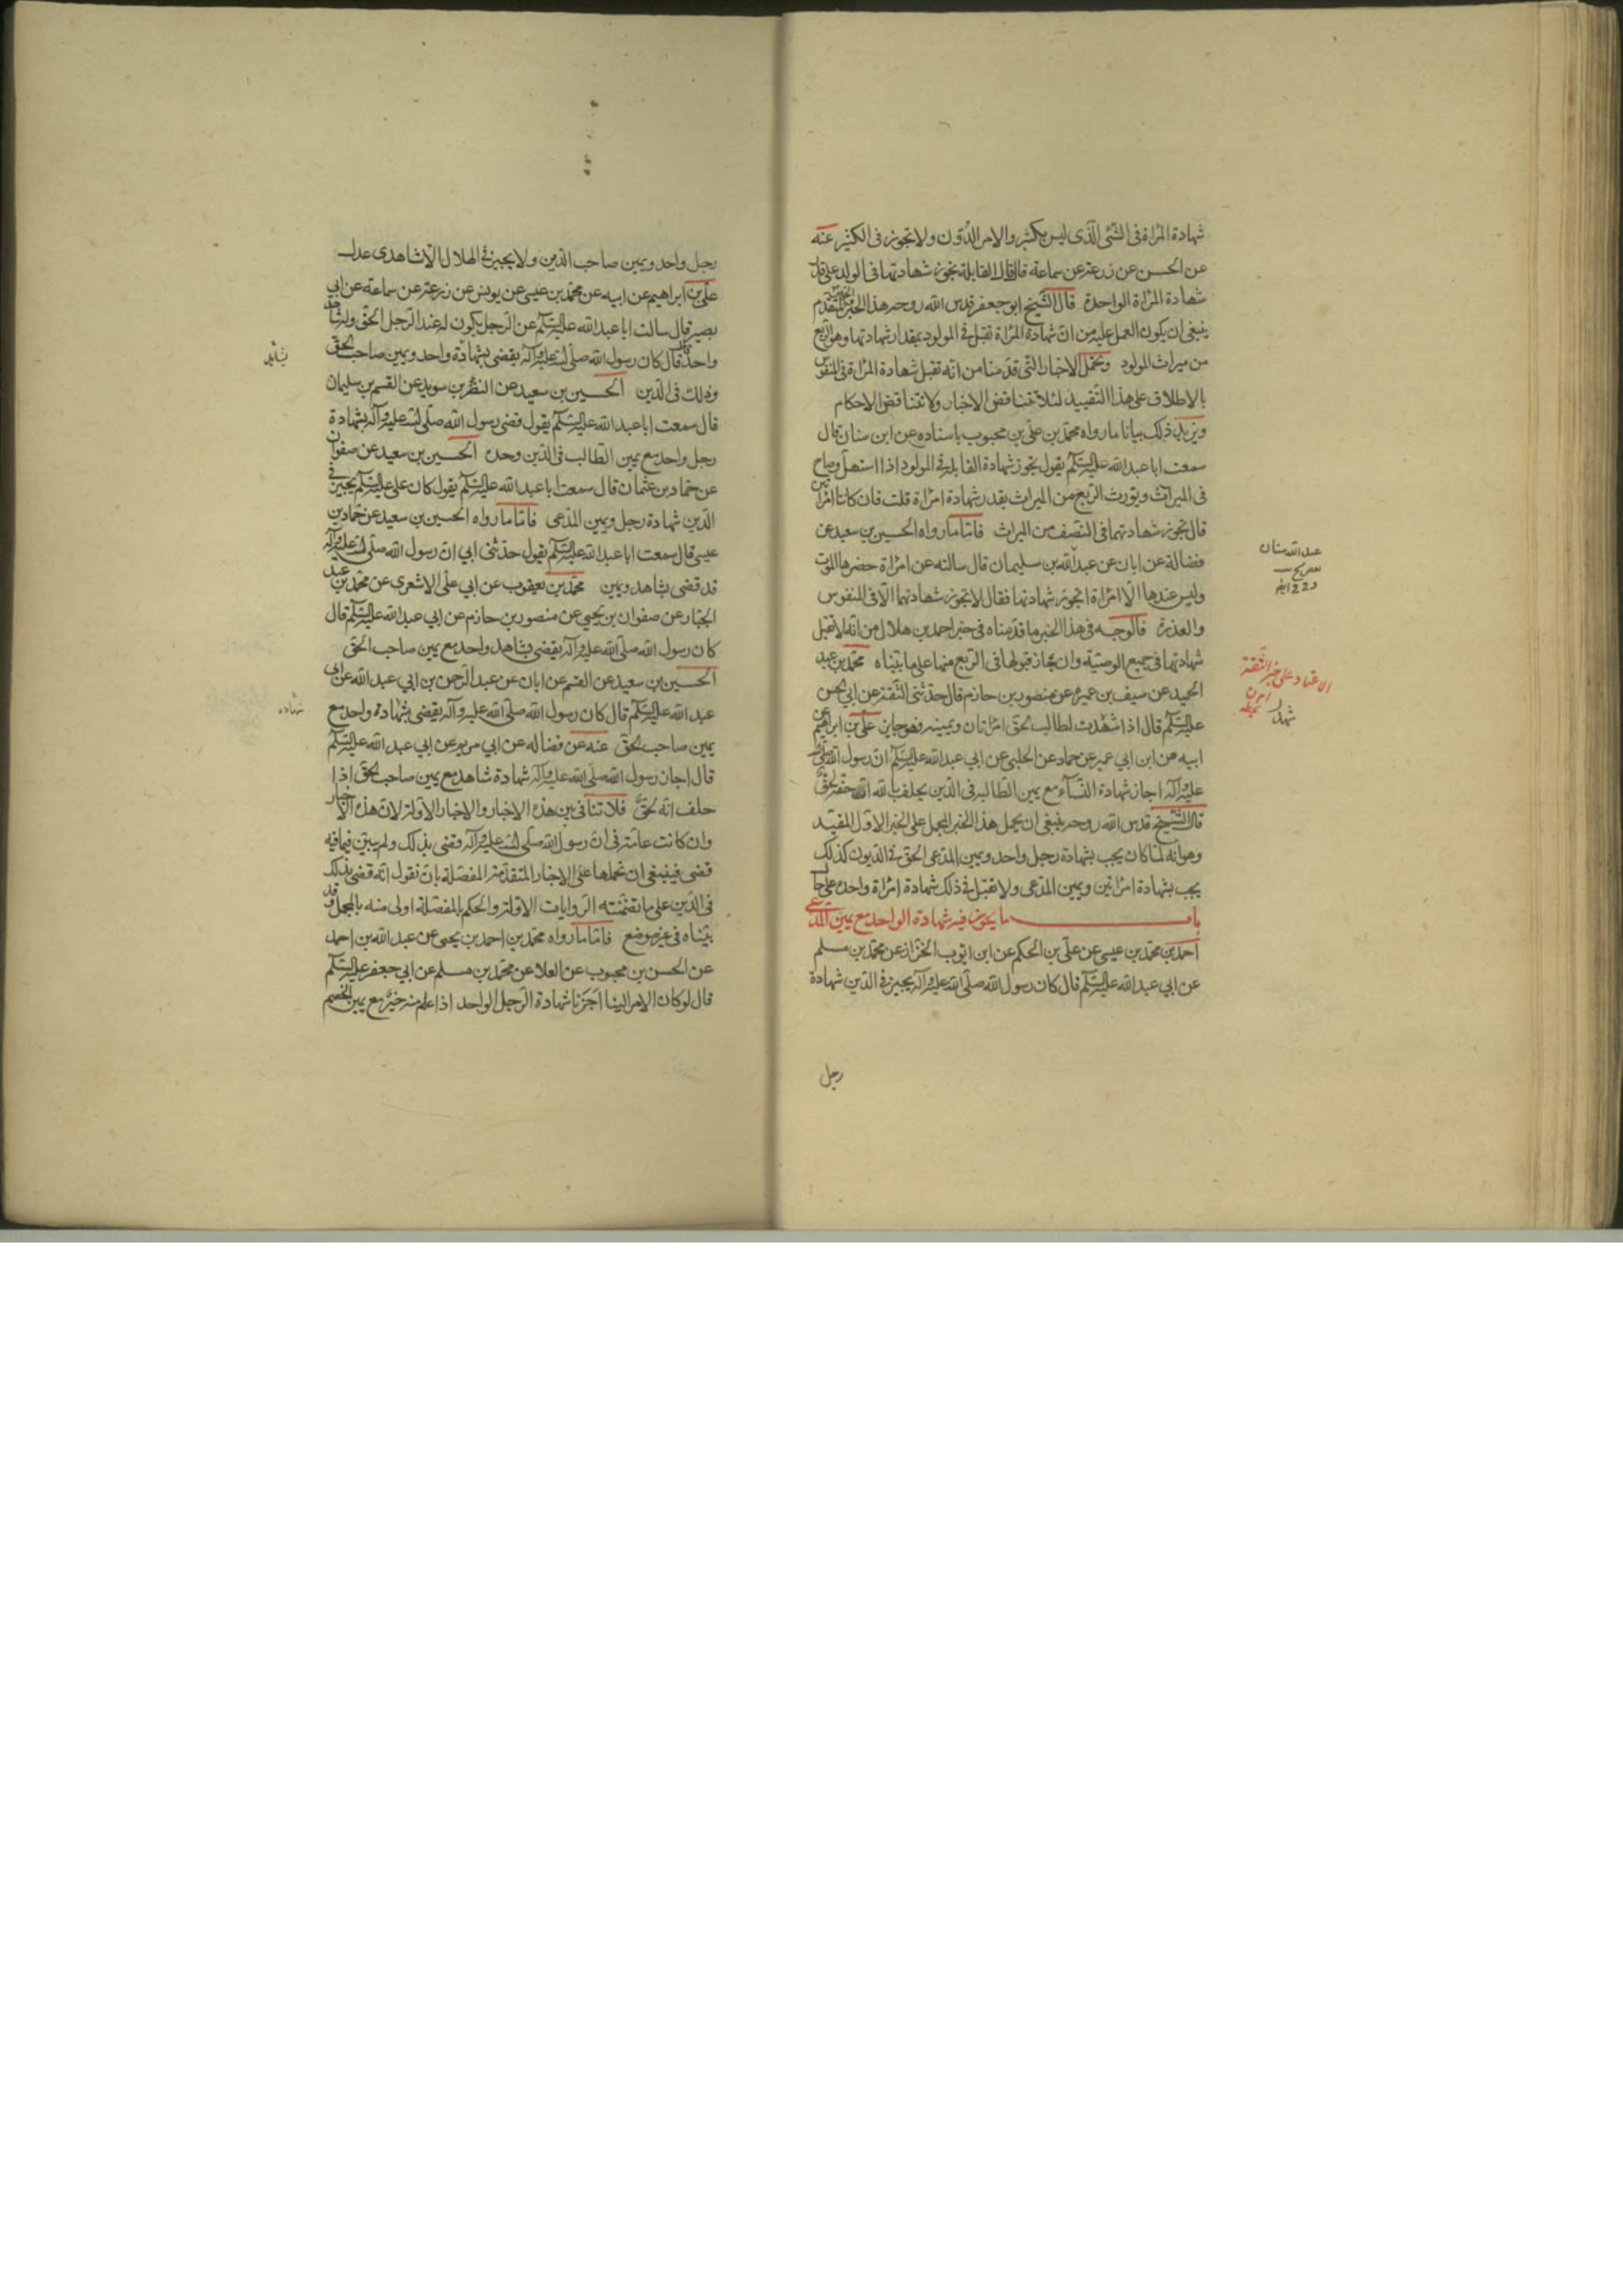 شهادة المرأة فى الشئ الذى ليس بكثير والامر الدون ولا تجوز فى الكثير عنه
عن الحسن عن زرعة عن سماعة قال قال القابلة تجوز شهادتها فى الولد على قدر
شهادة المرأة الواحدة قال الشيخ ابو جعفر قدس الله روحه هذا الخبر المتقدم
ينبغى ان يكون العمل عليه من ان شهادة المرأة تقبل فى المولود بمقدار شهادتها وهو الربع
من ميراث المولود وتحمل الاخبار التى قدمنا من انه تقبل شهادة المرأة فى المنفوس
بالاطلاق على هذا التقييد لئلا تتناقض الاخبار ولا تتناقض الاحكام
ويزيد ذلك بيانا ما رواه محمد بن على بن محبوب باسناده عن ابن سنان قال
سمعت ابا عبد الله عليه السلم يقول تجوز شهادة القابلة فى المولود اذا استهل وصاح
فى الميراث ويورث الربع من الميراث بقدر شهادة امرأة قلت فان كانتا امرأتين
قال تجوز شهادتهما فى النصف من الميراث فاما ما رواه الحسين بن سعيد عن
فضالة عن ابان عن عبد الله بن سليمان قال سالته عن امرأة حضرها الموت
وليس عندها الا امرأة اتجوز شهادتها فقال لا تجوز شهادتها الا فى المنفوس
والعذرة فالوجه فى هذا الخبر ما قدمناه فى خبر احمد بن هلال من انه لا تقبل
شهادتها فى جميع الوصية وان جاز قبولها فى الربع منها على ما بيناه محمد بن عبد
الحميد عن سيف بن عميرة عن منصور بن حازم قال حدثنى الثقة عن ابى الحسن
عليه السلم قال اذا شهدت لطالب الحق امرأتان ويمينه فهو جايز على بن ابراهيم عن
ابيه عن ابن ابى عمير عن حماد عن الحلبى عن ابى عبد الله عليه السلم ان رسول الله صلى الله
عليه وآله اجاز شهادة النساء مع يمين الطالب فى الدين يحلف بالله ان حقه لحق
قال الشيخ قدس الله روحه ينبغى ان يحمل هذا الخبر المجمل على الخبر الاول المقيد
وهو انه لما كان يجب بشهادة رجل واحد ويمين المدعى الحق فى الديون كذلك
يجب بشهادة امرأتين ويمين المدعى ولا تقبل فى ذلك شهادة امرأة واحدة على حال
باب ما يجوز فيه شهادة الواحد مع يمين المدعى
احمد بن محمد بن عيسى عن على بن الحكم عن ابن ايوب الخزاز عن محمد بن مسلم
عن ابى عبد الله عليه السلم قال كان رسول الله صلى الله عليه وآله يجيز فى الدين شهادة
رجل
عبد الله سنان
الاعتماد على خبر الثقة
رجل واحد ويمين صاحب الدين ولا يجيز فى الهلال الا شاهدى عدل
على بن ابراهيم عن ابيه عن محمد بن عيسى عن يونس عن زرعة عن سماعة عن ابى
بصير قال سالت ابا عبد الله عليه السلم عن الرجل يكون له عند الرجل الحق وله شاهد
واحد قال فقال كان رسول الله صلى الله عليه وآله يقضى بشهادة واحد ويمين صاحب الحق
وذلك فى الدين الحسين بن سعيد عن النضر بن سويد عن القسم بن سليمان
قال سمعت ابا عبد الله عليه السلم يقول قضى رسول الله صلى الله عليه وآله بشهادة
رجل واحد مع يمين الطالب فى الدين وحده الحسين بن سعيد عن صفوان
عن حماد بن عثمان قال سمعت ابا عبد الله عليه السلم يقول كان على عليه السلم يجيز فى
الدين شهادة رجل ويمين المدعى فاما ما رواه الحسين بن سعيد عن حماد بن
عيسى قال سمعت ابا عبد الله عليه السلم يقول حدثنى ابى ان رسول الله صلى الله عليه وآله
قد قضى بشاهد ويمين محمد بن يعقوب عن ابى على الاشعرى عن محمد بن عبد
الجبار عن صفوان بن يحيى عن منصور بن حازم عن ابى عبد الله عليه السلم قال
كان رسول الله صلى الله عليه وآله يقضى بشاهد واحد مع يمين صاحب الحق
الحسين بن سعيد عن القسم عن ابان عن عبد الرحمن بن ابى عبد الله عن ابى
عبد الله عليه السلم قال كان رسول الله صلى الله عليه وآله يقضى بشهادة واحد مع
يمين صاحب الحق عنه عن فضالة عن ابى مريم عن ابى عبد الله عليه السلم
قال اجاز رسول الله صلى الله عليه وآله شهادة شاهد مع يمين صاحب الحق اذا
حلف انه لحق فلا تنافى بين هذه الاخبار والاخبار الاولة لان هذه الاخبار
وان كانت عامة فى ان رسول الله صلى الله عليه وآله قضى بذلك ولم يبين فيما فيه
قضى فينبغى ان نحملها على الاخبار المتقدمة المفصلة بان نقول انه قضى بذلك
فى الدين على ما تضمنته الروايات الاولة والحكم بالمفصلة اولى منه بالمجمل وقد
بيناه فى غير موضع فاما ما رواه محمد بن احمد بن يحيى عن عبد الله بن احمد
عن الحسن بن محبوب عن العلا عن محمد بن مسلم عن ابى جعفر عليه السلم
قال لو كان الامر الينا اجزنا شهادة الرجل الواحد اذا علم منه خير مع يمين الخصم
شهادة